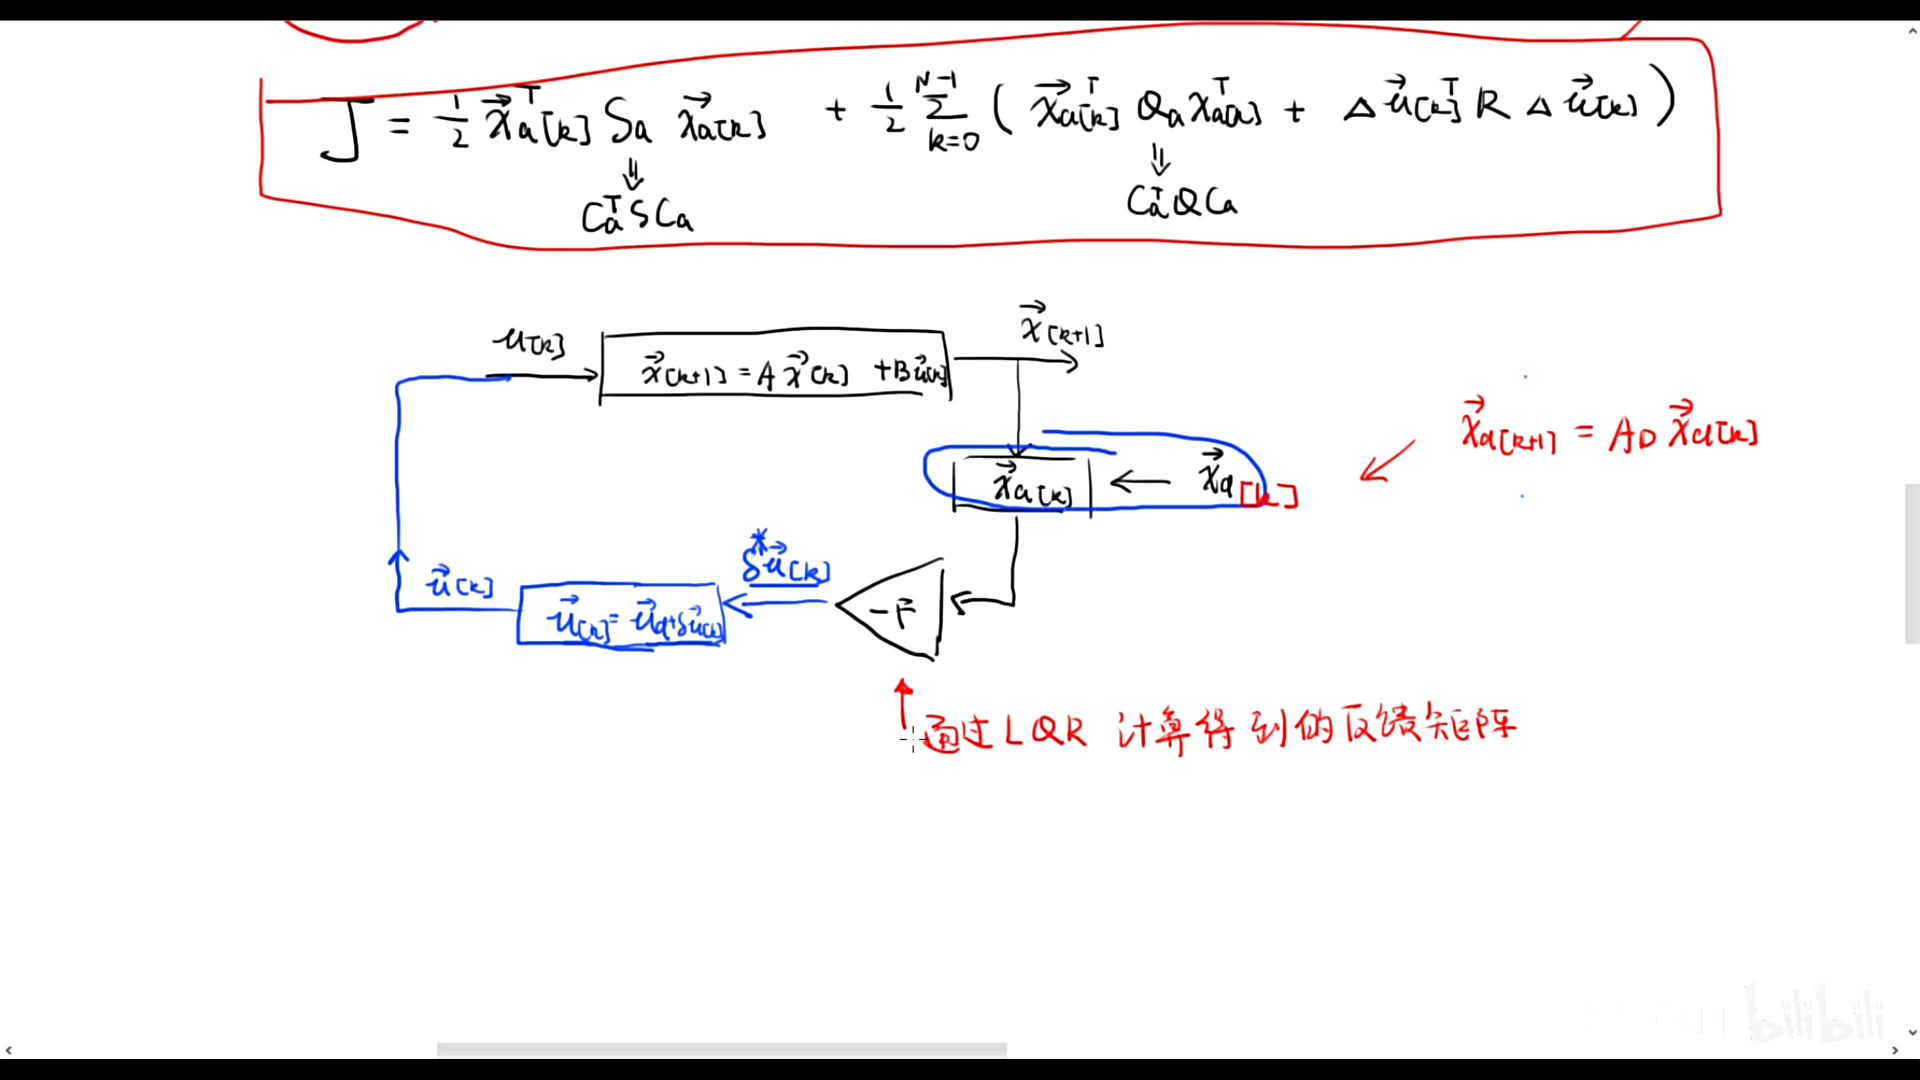 J = 1/2 x⃗ₐᵀ[k] Sₐ x⃗ₐ[k] + 1/2 Σ_{k=0}^{N-1} ( x⃗ₐᵀ[k] Qₐ xₐᵀ[k] + Δu⃗[k]ᵀ R Δu⃗[k] )
⇓ ⇓
CₐᵀSCₐ CₐᵀQCₐ
x⃗[k+1]
u[k]
x⃗[k+1] = A x⃗[k] + B u⃗[k]
x⃗a[k+1] = AD x⃗a[k]
x⃗a[k] ← x⃗a[k]
δ*u⃗[k]
u⃗[k]
u⃗[k] = u⃗d+δu⃗[k]
-F
通过LQR 计算得到的反馈矩阵
bilibili